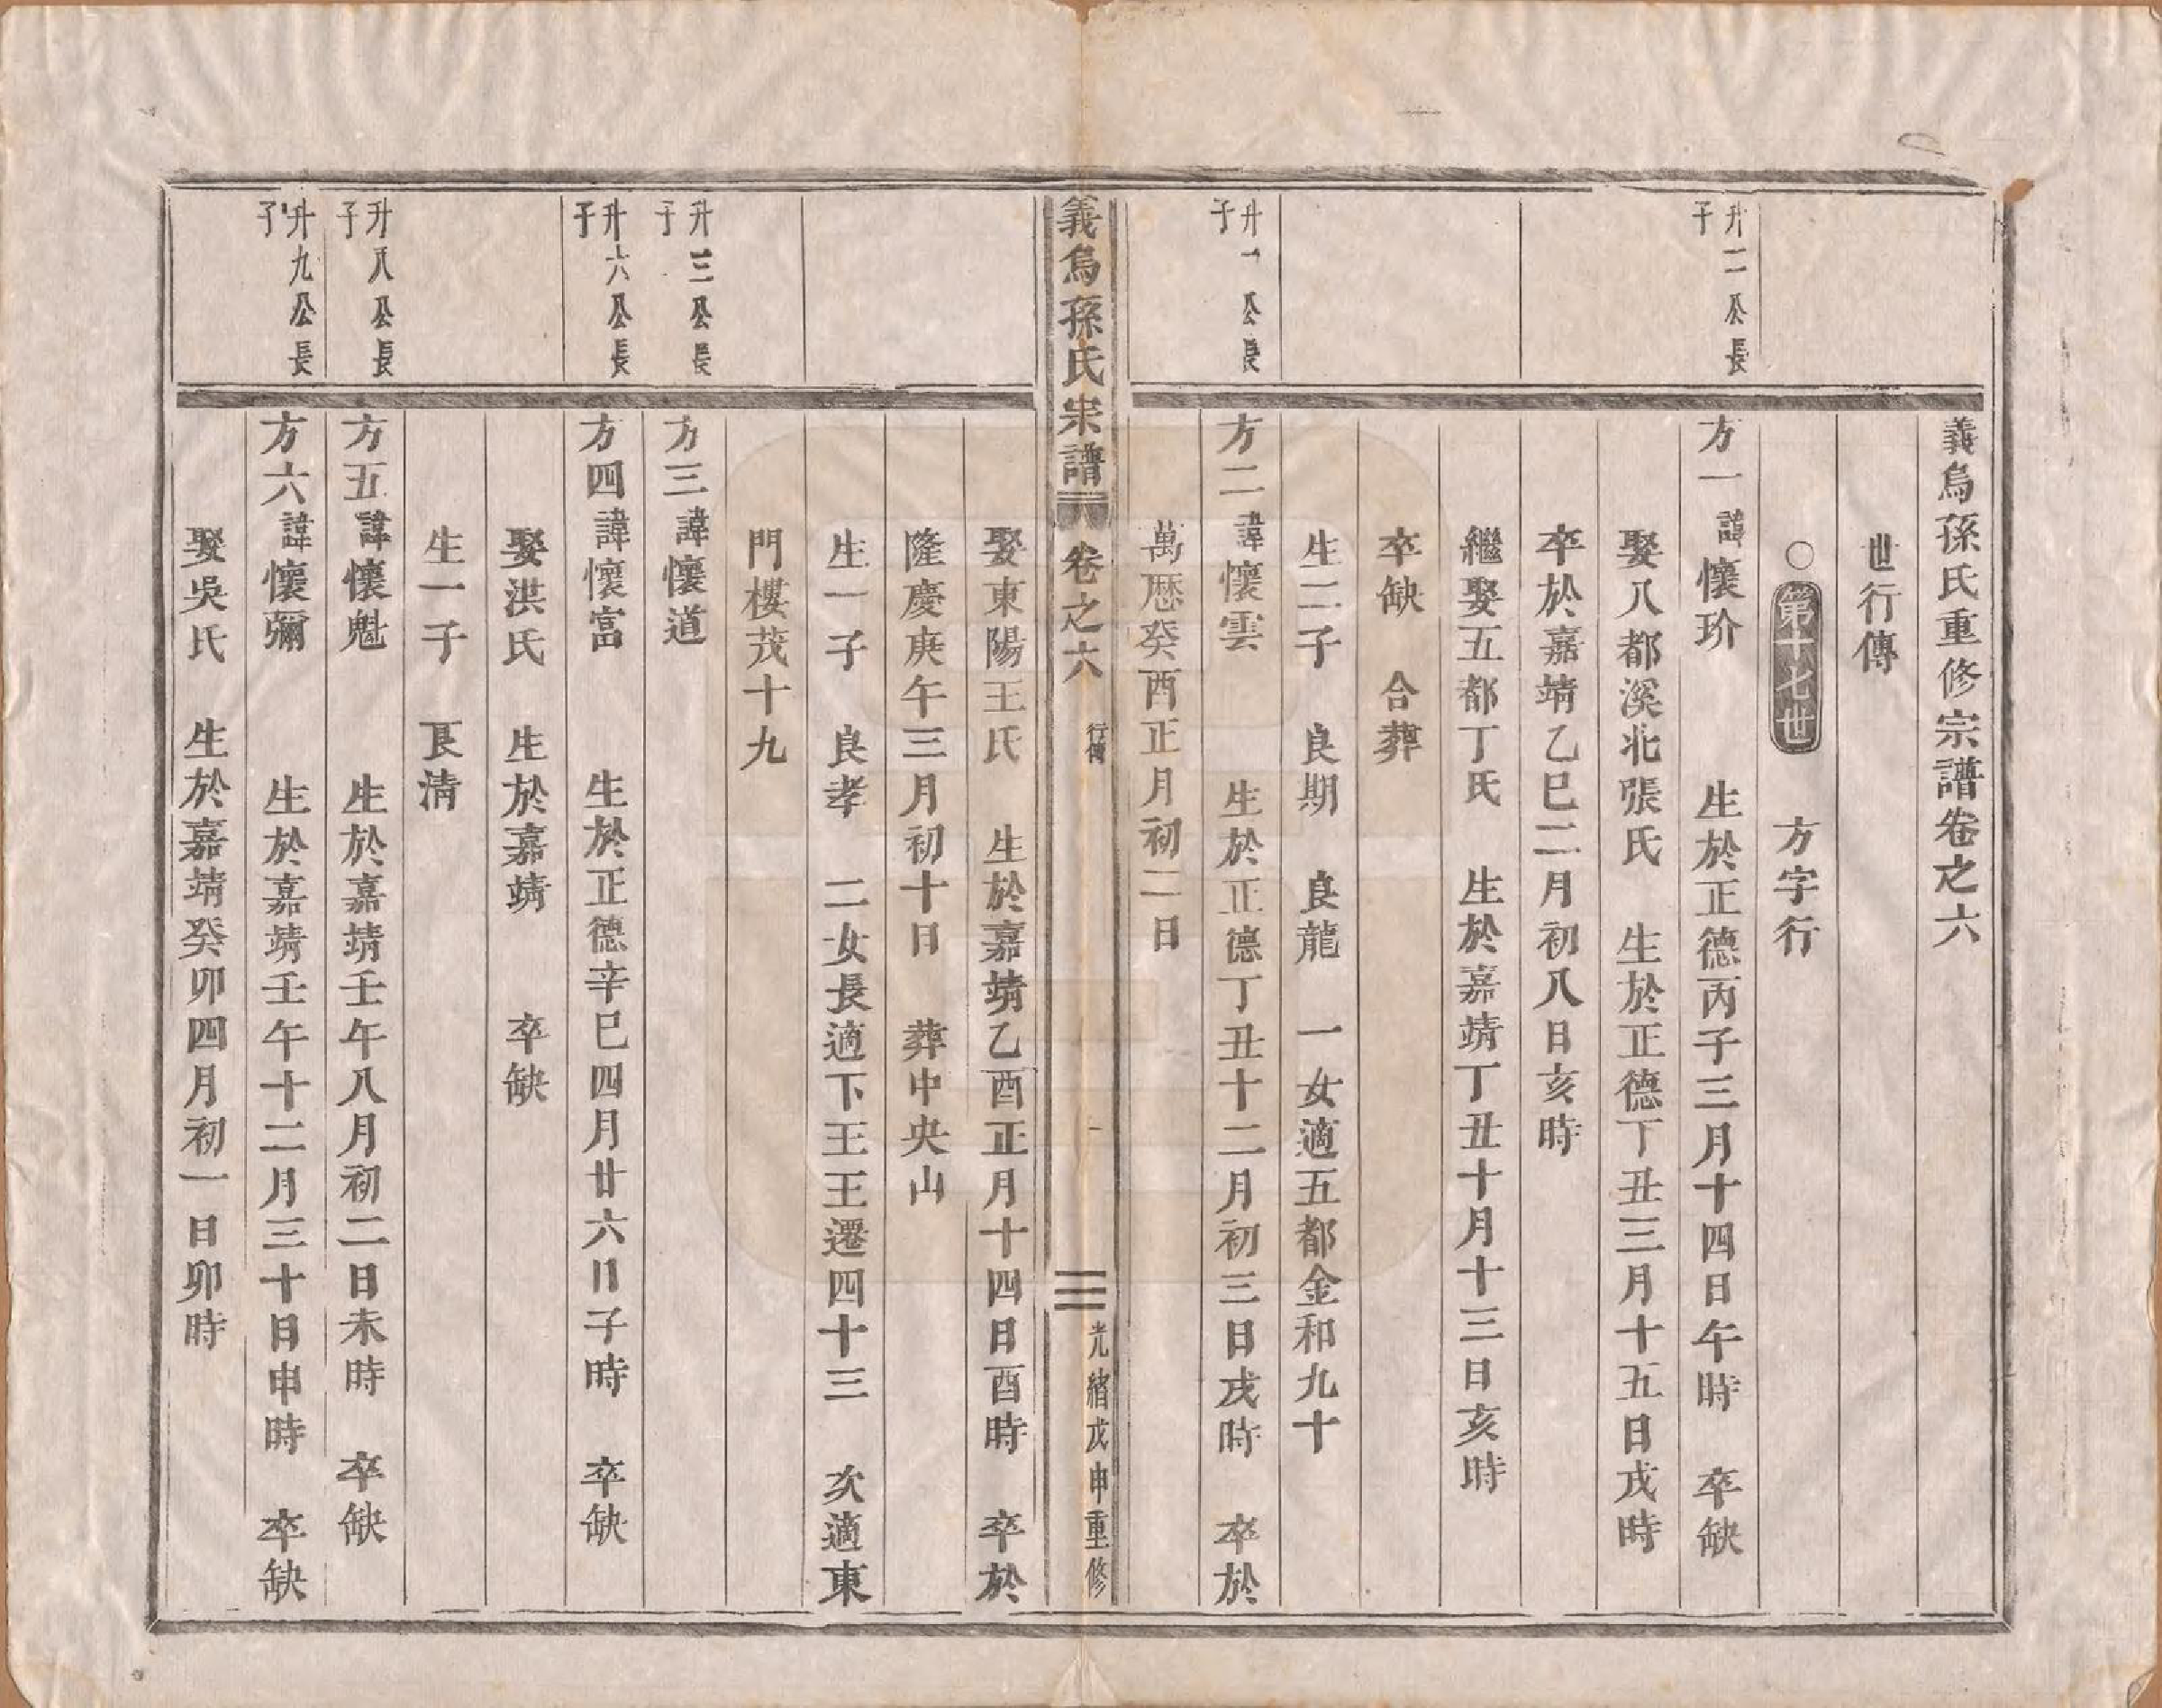 義烏孫氏重修宗譜卷之六
世行傳
○第十七世 方字行
升二公長子
方一諱懷玠 生於正德丙子三月十四日午時 卒缺
娶八都溪北張氏 生於正德丁丑三月十五日戌時
卒於嘉靖乙巳二月初八日亥時
繼娶五都丁氏 生於嘉靖丁丑十月十三日亥時
卒缺 合葬
生二子 良期 良龍 一女適五都金和九十
升一公長子
方二諱懷雲 生於正德丁丑十二月初三日戌時 卒於
萬歷癸酉正月初二日
義烏孫氏宗譜 卷之六 行傳 一 光緒戊申重修
娶東陽王氏 生於嘉靖乙酉正月十四日酉時 卒於
隆慶庚午三月初十日 葬中央山
生一子 良孝 二女長適下王王遷四十三 次適東
門樓茂十九
升三公長子
方三諱懷道
升六公長子
方四諱懷富 生於正德辛巳四月廿六日子時 卒缺
娶洪氏 生於嘉靖 卒缺
生一子 良清
升八公長子
方五諱懷魁 生於嘉靖壬午八月初二日未時 卒缺
升九公長子
方六諱懷彌 生於嘉靖壬午十二月三十日申時 卒缺
娶吳氏 生於嘉靖癸卯四月初一日卯時